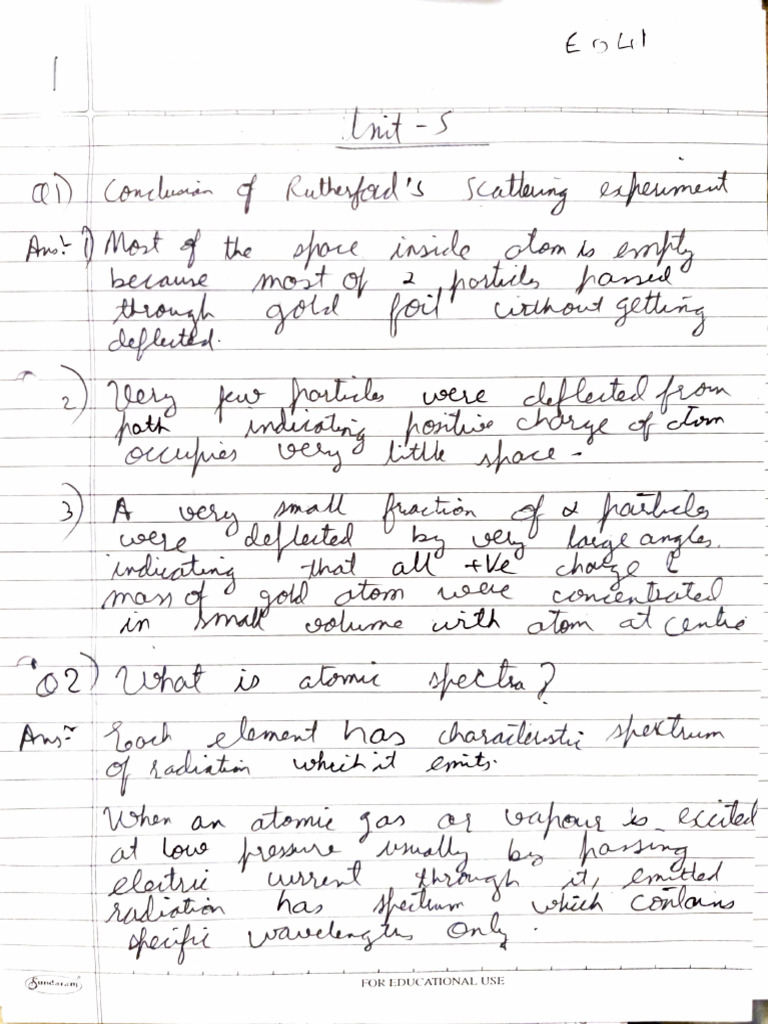 E 5 41
1
Unit - 5
Q1) Conclusion of Rutherford's Scattering experiment
Ans:- 1) Most of the space inside atom is empty
because most of α particles passed
through gold foil without getting
deflected.
2) Very few particles were deflected from
path indicating positive charge of atom
occupies very little space -
3) A very small fraction of α particles
were deflected by very large angles.
indicating that all +ve charge &
mass of gold atom were concentrated
in small volume with atom at centre
Q2) What is atomic spectra?
Ans:- Each element has characteristic spektrum
of radiation which it emits.
When an atomic gas or vapour is excited
at low pressure usually by passing
electric current through it, emitted
radiation has spectrum which contains
specific wavelengths only.
Sundaram
FOR EDUCATIONAL USE